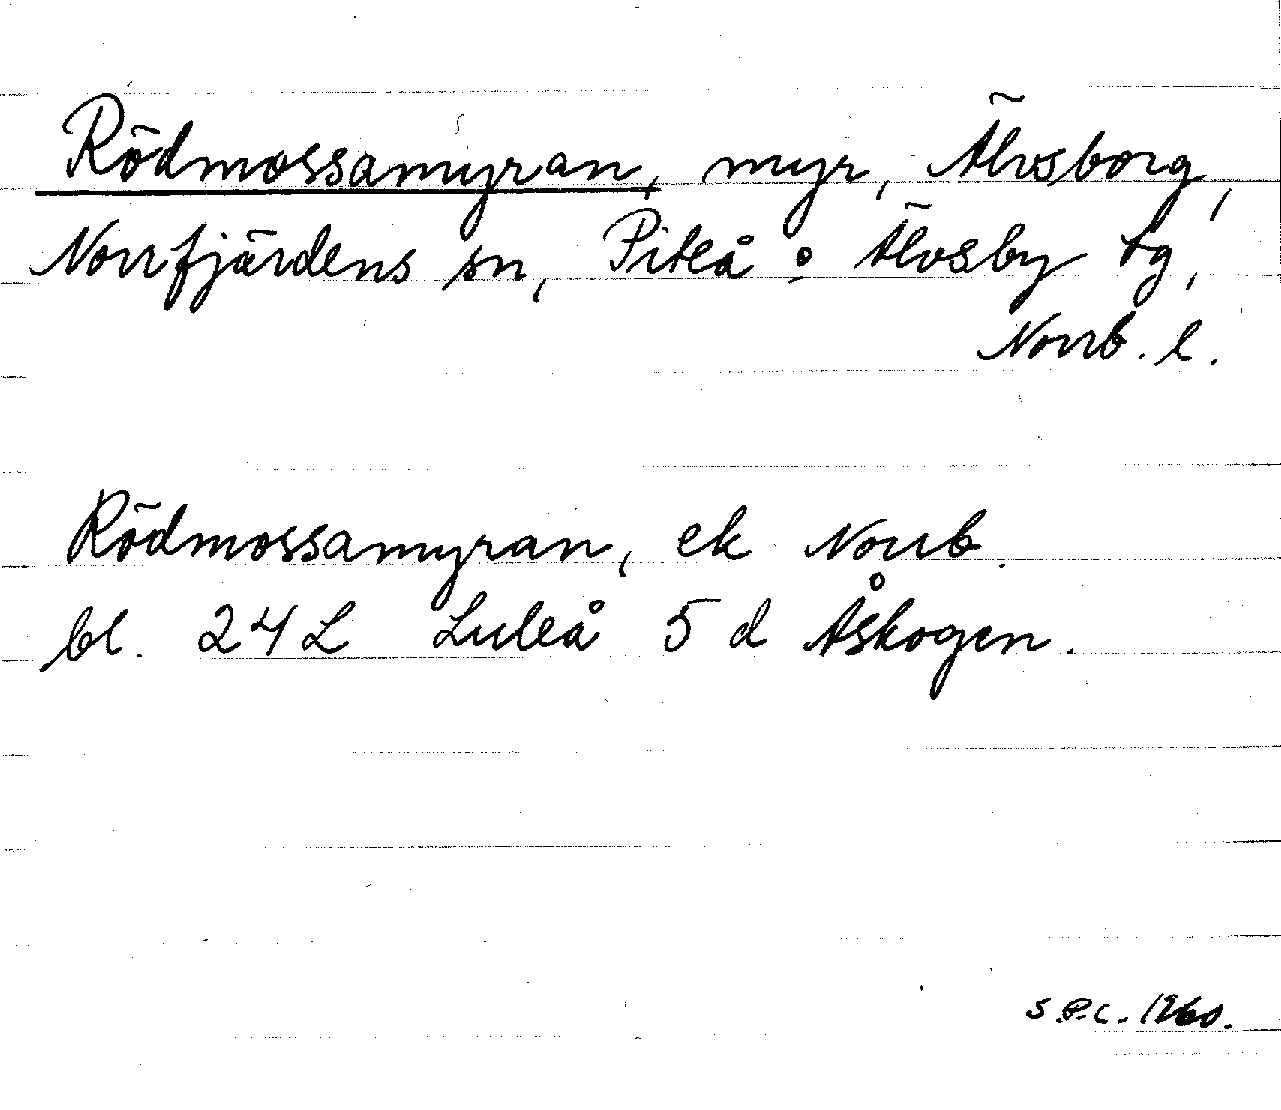 Rödmossamyran, myr, Älvsborg,
Norrfjärdens sn, Piteå o Älvsby tg,
Norrb. l.
Rödmossamyran, ek Norrb.
bl. 24 L Luleå 5 d Åskogen.
S.P.C. 1960.